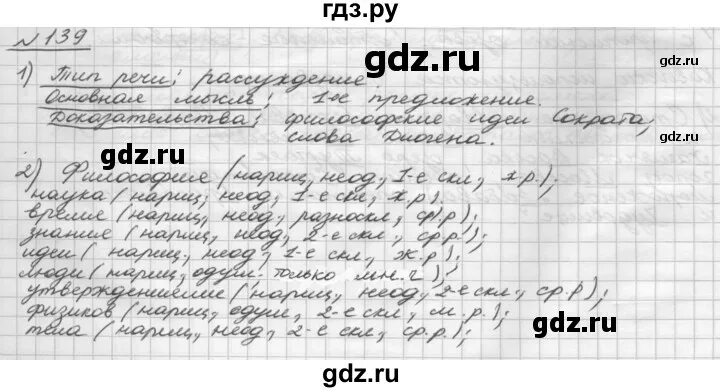 гдз.ру
№139
gdz.ru
1) Тип речи; рассуждение.
Основная мысль; 1-е предложение.
Доказательства; философские идеи Сократа,
слова Диогена.
gdz.ru
gdz.ru
2) Философия (нариц, неод, 1-е скл, ж.р.);
наука (нариц, неод, 1-е скл, ж.р.);
время (нариц, неод, разноскл, ср.р);
знание (нариц, неод, 2-е скл, ср.р.);
идеи (нариц, неод, 1-е скл, ж.р.);
люди (нариц, одуш, только мн.ч);
утверждение (нариц, неод, 2-е скл, ср.р);
физиков (нариц, одуш, 2-е скл, м.р.);
тела (нариц, неод, 2-е скл, ср.р.);
gdz.ru
gdz.ru